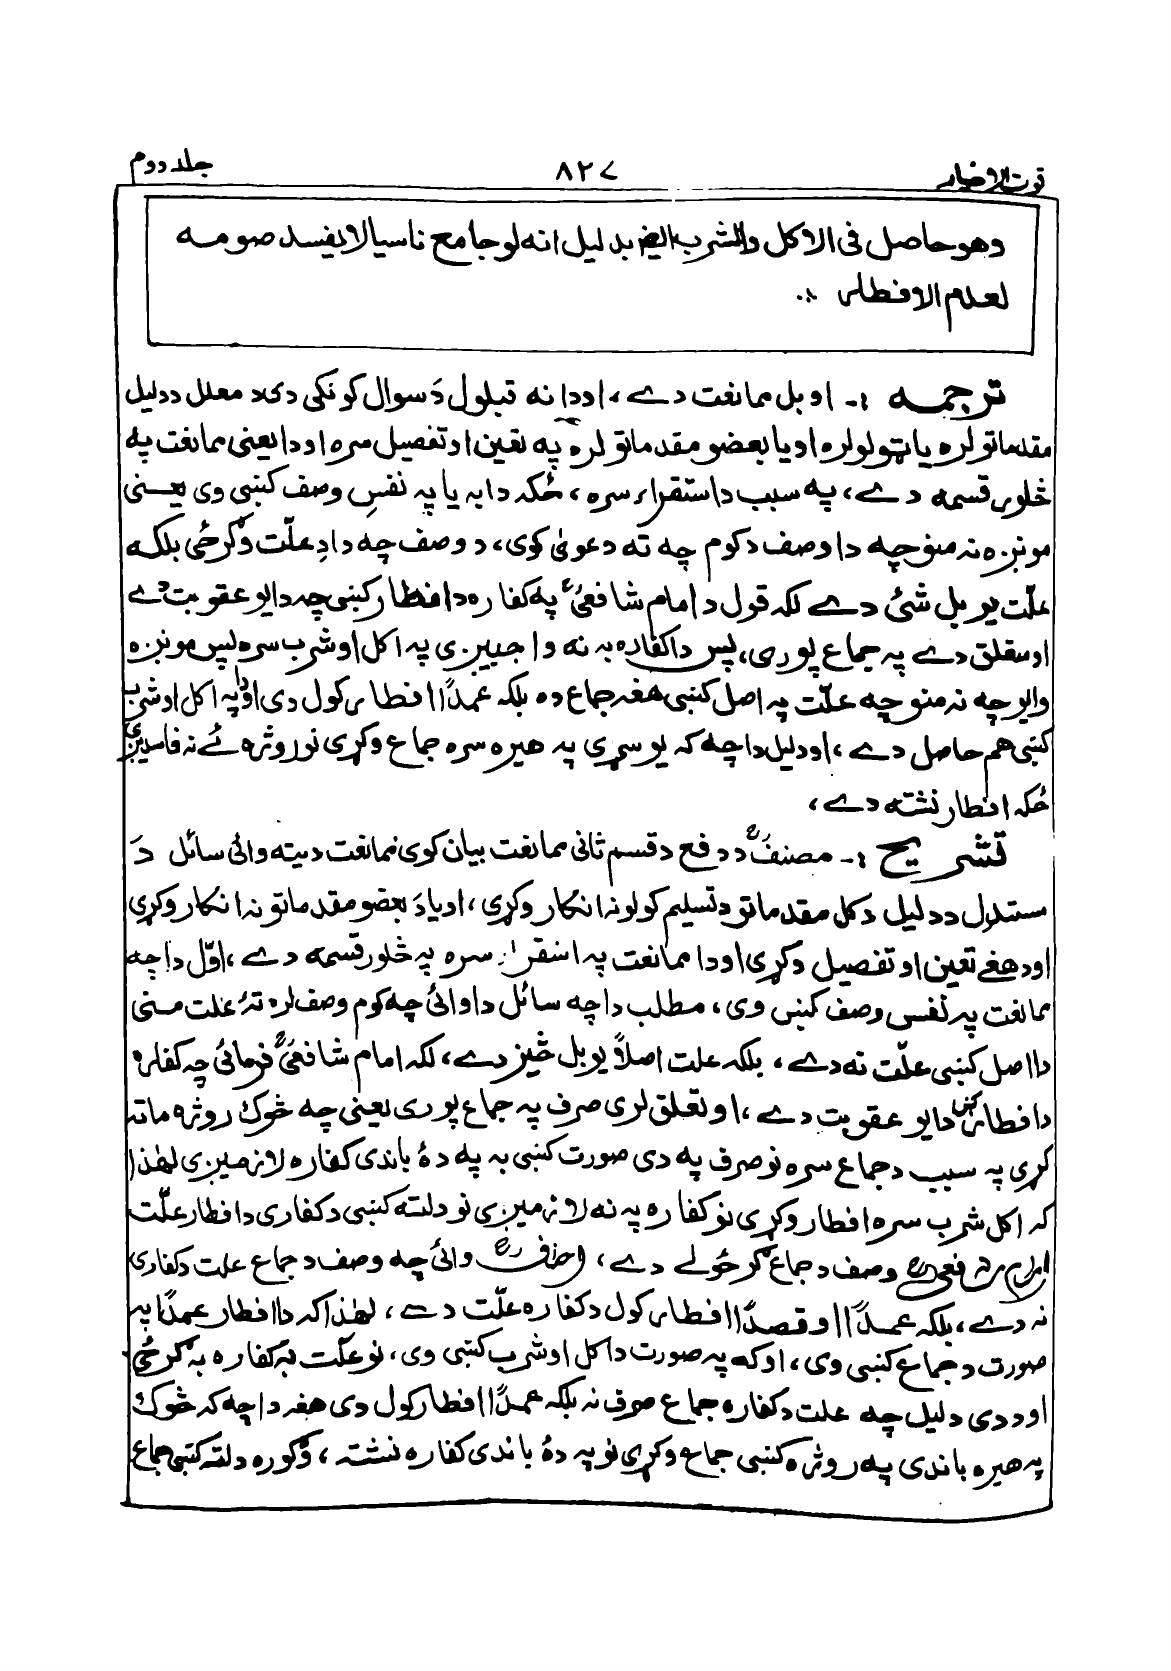 قوت الاخیار
۸۲۷
جلد دوم
وهو حاصل فی الاکل والشرب ایضا بدلیل انه لو جامع ناسیا لا یفسد صومه
لعدم الافطار ∴
ترجمه :- او بل ممانعت دے ، او دا نه قبلول دَ سوال کونکی دی د معلل د دلیل
مقدماتو لره یا ټولو لره او یا بعضو مقدماتو لره په تعین او تفصیل سره او دا یعنی ممانعت په
څلور قسمه دے ، په سبب د استقراء سره ، ځکه دا به یا په نفسِ وصف کښی وی یعنی
مونږه نه منو چه دا وصف د کوم چه ته دعویٰ کوی ، د وصف چه دا دِ علّت وګرځی بلکه
علّت یو بل شئ دے لکه قول د امام شافعیؒ په کفاره د افطار کښی چه دا یو عقوبت دے
او متعلق دے په جماع پوری ، پس دا کفاره به نه واجبیږی په اکل او شرب سره پس مونږه
وایو چه نه منو چه علّت په اصل کښی هغه جماع ده بلکه عمداً افطار کول دی او دا په اکل او شرب
کښی هم حاصل دے ، او دلیل دا چه که یو سړی په هیره سره جماع وکړی نو روژه ئے نه فاسدیږی
ځکه افطار نشته دے ،
تشریح :- مصنفؒ د دفع د قسم ثانی ممانعت بیان کوی ممانعت دیته وائی سائل دَ
مستدل د دلیل د کل مقدماتو د تسلیم کولو نه انکار وکړی ، او یا دَ بعضو مقدماتو نه انکار وکړی
او د هغے تعین او تفصیل وکړی او دا ممانعت په استقراء سره په څلور قسمه دے ، اوّل دا چه
ممانعت په نفس وصف کښی وی ، مطلب دا چه سائل دا وائی چه کوم وصف لره تهٔ علت منی
دا اصل کښی علّت نه دے ، بلکه علت اصلاً یو بل څیز دے ، لکه امام شافعیؒ فرمائی چه کفاره
د افطار کښی دا یو عقوبت دے ، او تعلق لری صرف په جماع پوری یعنی چه څوک روژه ماته
کړی په سبب د جماع سره نو صرف په دی صورت کښی به په دهٔ باندی کفاره لازمیږی لهٰذا
که اکل شرب سره افطار وکړی نو کفاره په نه لازمیږی نو دلته کښی د کفاری د افطار علّت
امام شافعیؒ وصف د جماع ګرځولے دے ، احنافؒ وائی چه وصف د جماع علت د کفاری
نه دے ، بلکه عمداً او قصداً افطار کول د کفاره علّت دے ، لهٰذا که دا افطار عمداً په
صورت د جماع کښی وی ، او که په صورت د اکل او شرب کښی وی ، نو علّت به کفاره به ګرځی
او د دی دلیل چه علت د کفاره جماع صرف نه بلکه عمداً افطار کول دی هغه دا چه که څوک
په هیره باندی په روژه کښی جماع وکړی نو په دهٔ باندی کفاره نشته ، وګوره دلته کښی جماع